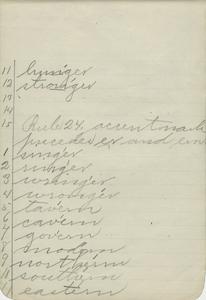 11 hunger
12 stronger
13
14
15 Rule 24. accent mark
precedes er and ern
1 singer
2 ringer
3 wringer
4 wronger
5 tavern
6 cavern
7 govern
8 modern
9 northern
southern
11 eastern